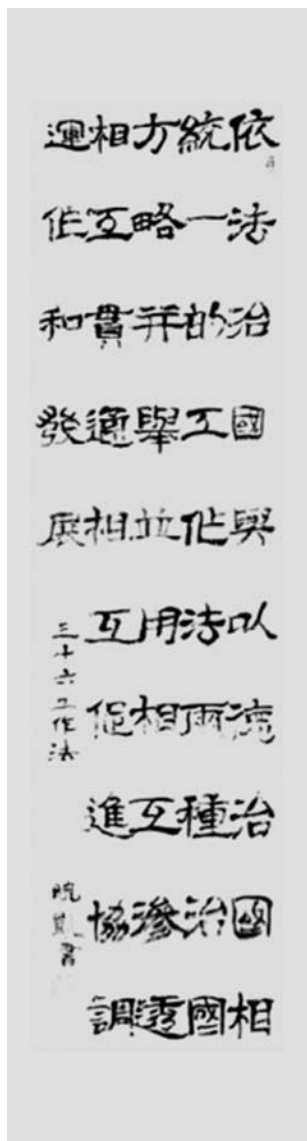 依法治國與以治國相
統一的工作法兩種治國
方略并舉並用相互滲透
相互貫通相互促進協調
運作和發展
三十六工作法
凱書